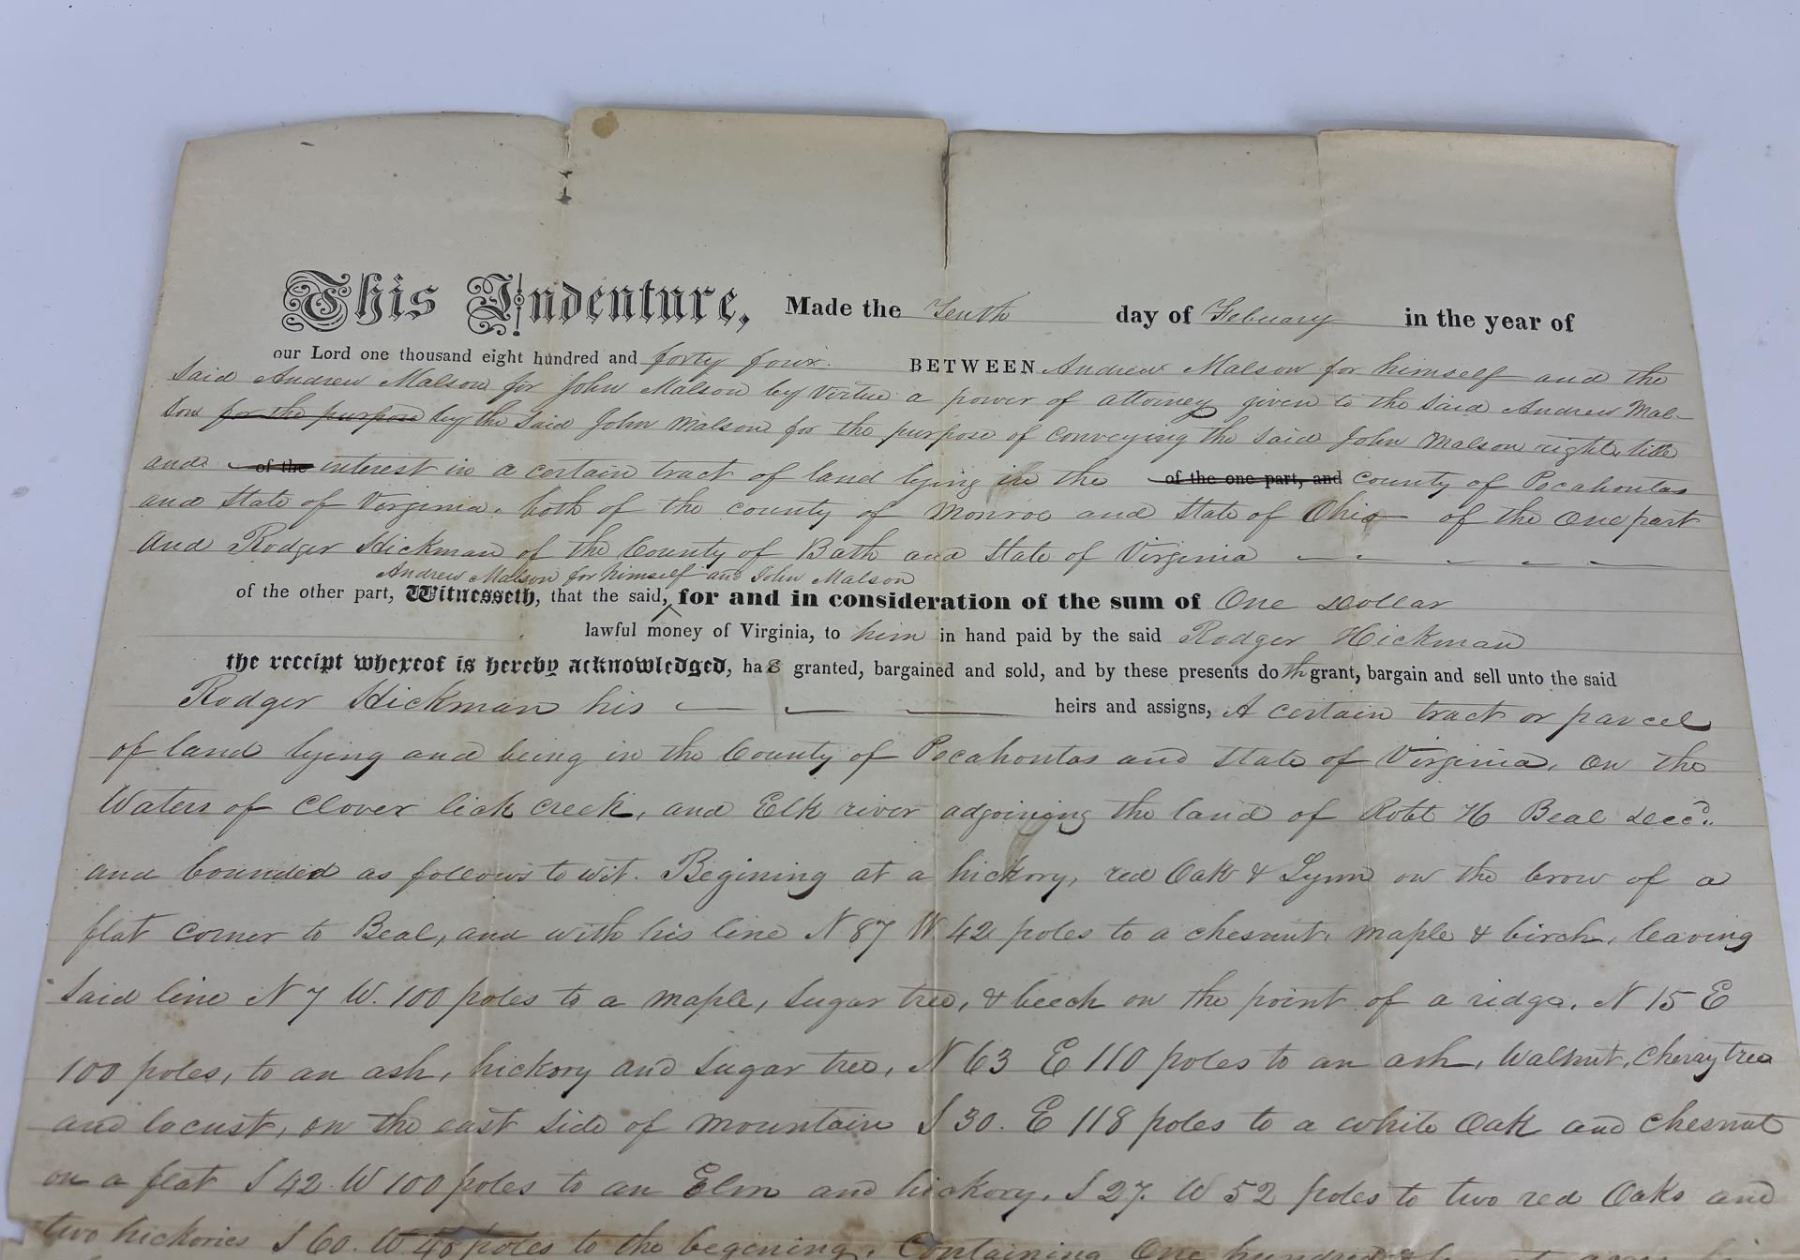 This Indenture, Made the Tenth day of Febuary in the year of
our Lord one thousand eight hundred and forty four. BETWEEN Andrew Malson for himself and the
said Andrew Malson for John Malson by virtue a power of attorney given to the said Andrew Mal-
son for the purpose by the said John Malson for the purpose of conveying the said John Malson right, title
and of the interest in a certain tract of land lying in the of the one part, and County of Pocahontas
and State of Virginia. both of the county of Monroe and State of Ohio of the one part
and Rodger Hickman of the County of Bath and State of Virginia
Andrew Malson for himself and John Malson
of the other part, Witnesseth, that the said, for and in consideration of the sum of One Dollar
lawful money of Virginia, to him in hand paid by the said Rodger Hickman
the receipt whereof is hereby acknowledged, has granted, bargained and sold, and by these presents doth grant, bargain and sell unto the said
Rodger Hickman his heirs and assigns, A certain tract or parcel
of land lying and being in the County of Pocahontas and State of Virginia, on the
Waters of Clover lick creek, and Elk river adjoining the land of Robt H Beal decd.
and bounded as follows to wit. Begining at a hickory, red Oak & Lynn on the brow of a
flat corner to Beal, and with his line N 87 W 42 poles to a chesnut, maple & birch, leaving
said line N 7 W. 100 poles to a maple, sugar tree, & beech on the point of a ridge, N 15 E
100 poles, to an ash, hickory and sugar tree, N 63 E 110 poles to an ash, walnut, cherry tree
and locust, on the east side of mountain S 30. E 118 poles to a white Oak and chesnut
on a flat S 42 W 100 poles to an Elm and hickory, S 27. W 52 poles to two red Oaks and
two hickories S 60. W 40 poles to the begining. Containing One hundred